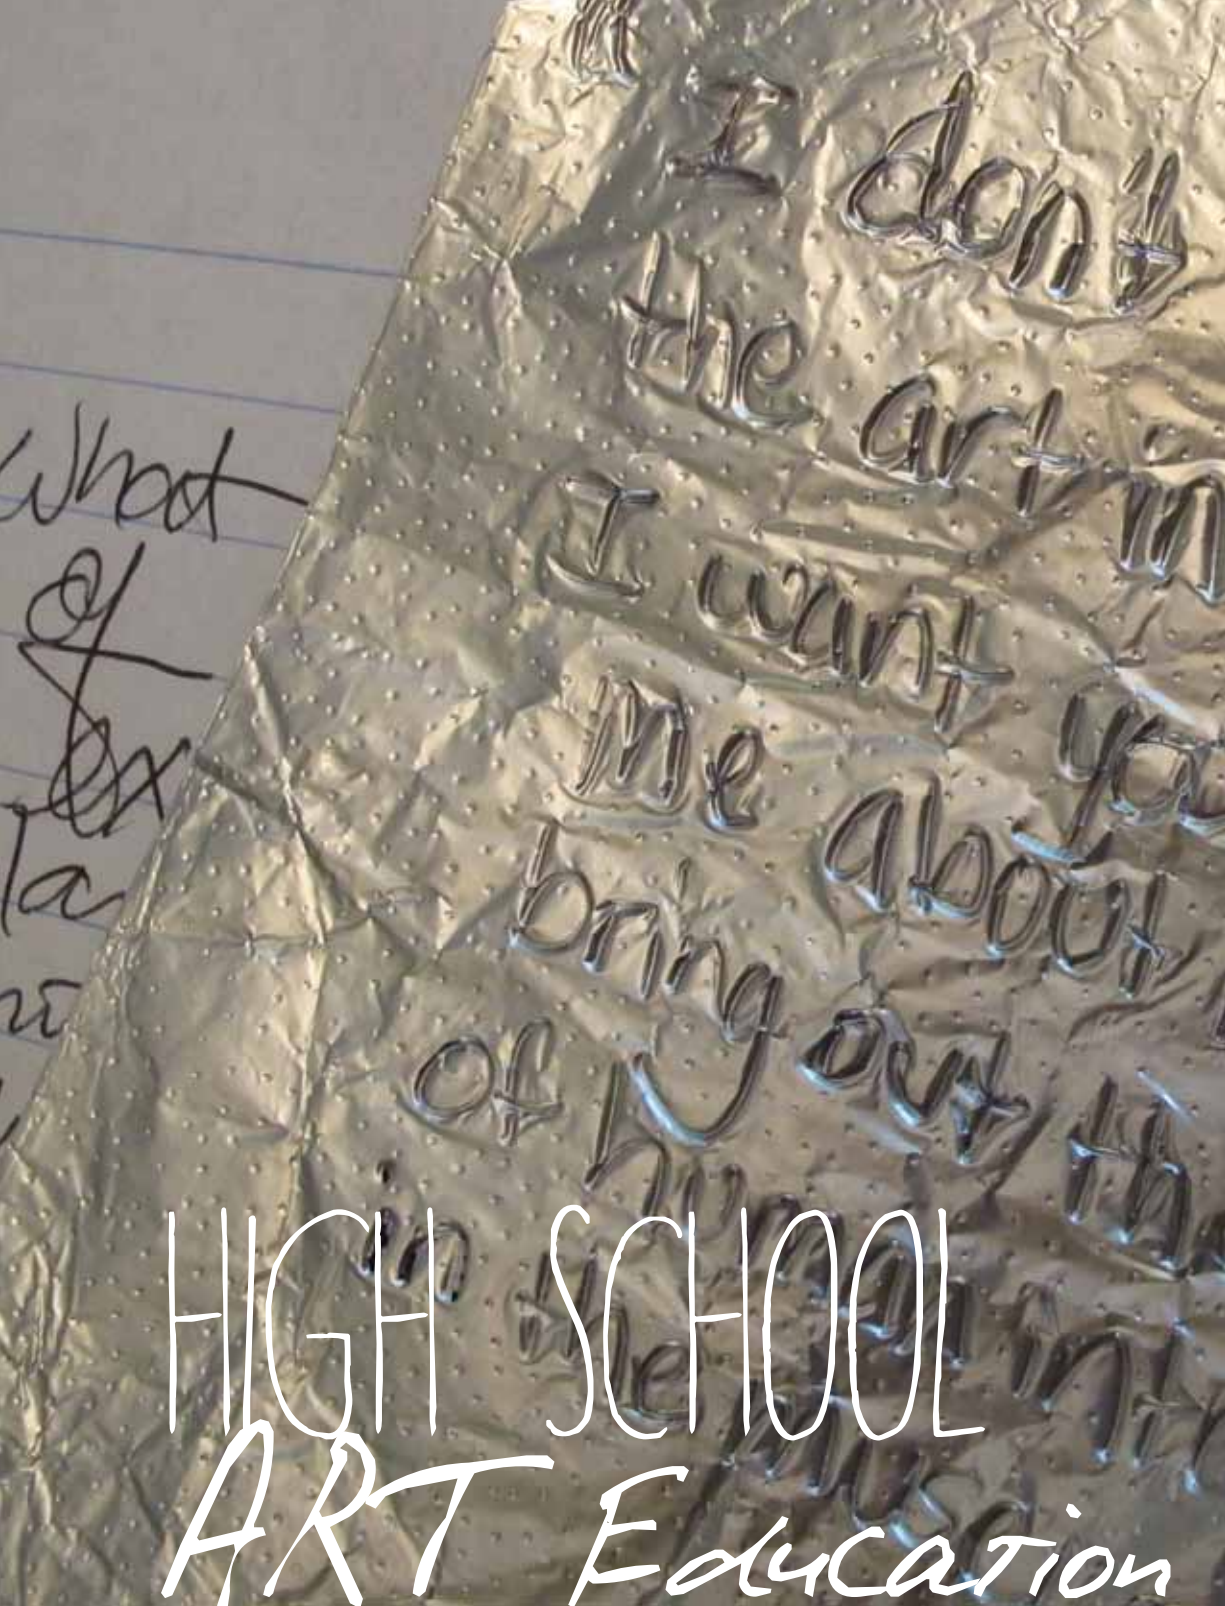 What
of
I don't
the art m
I want yo
me about
bring out th
of human int
in the
HIGH SCHOOL
ART Education